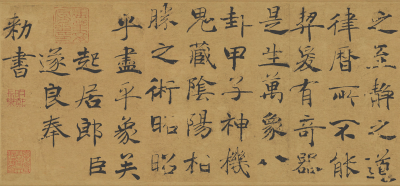 之至靜之道
律曆所不能
契爰有奇器
是生萬象八
卦甲子神機
鬼藏陰陽相
勝之術昭昭
乎盡乎象矣
起居郎臣
遂良奉
勅書